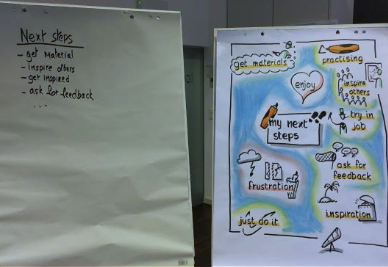 Next steps
- get Material
- Inspire others
- get inspired
- ask for feedback
...
get materials
practising
enjoy
inspire
others
my next
steps
try in
job
ask for
feedback
frustration
just do it
inspiration